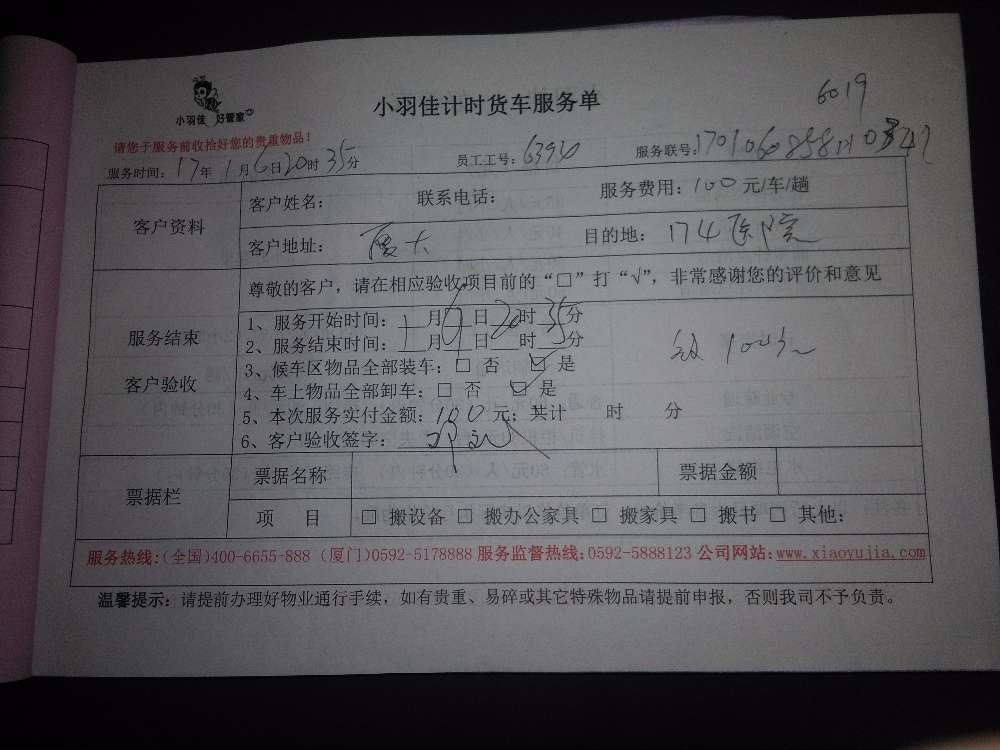 小羽佳计时货车服务单
6019
小羽佳 好管家
请您于服务前收拾好您的贵重物品！
服务时间：17年1月6日20时35分 员工工号： 服务联号：
客户资料
客户姓名： 联系电话： 服务费用：100元/车/趟
客户地址：厦大 目的地：174医院
服务结束
客户验收
尊敬的客户，请在相应验收项目前的“□”打“√”，非常感谢您的评价和意见
1、服务开始时间：1月 日20时35分
2、服务结束时间：1月 日 时 分
3、候车区物品全部装车：□ 否 ☑ 是
4、车上物品全部卸车：□ 否 ☑ 是
5、本次服务实付金额：100元；共计 时 分
6、客户验收签字：
票据栏
票据名称 票据金额
项 目 □ 搬设备 □ 搬办公家具 □ 搬家具 □ 搬书 □ 其他：
服务热线：(全国)400-6655-888 (厦门)0592-5178888 服务监督热线：0592-5888123 公司网站：www.xiaoyujia.com
温馨提示：请提前办理好物业通行手续，如有贵重、易碎或其它特殊物品请提前申报，否则我司不予负责。